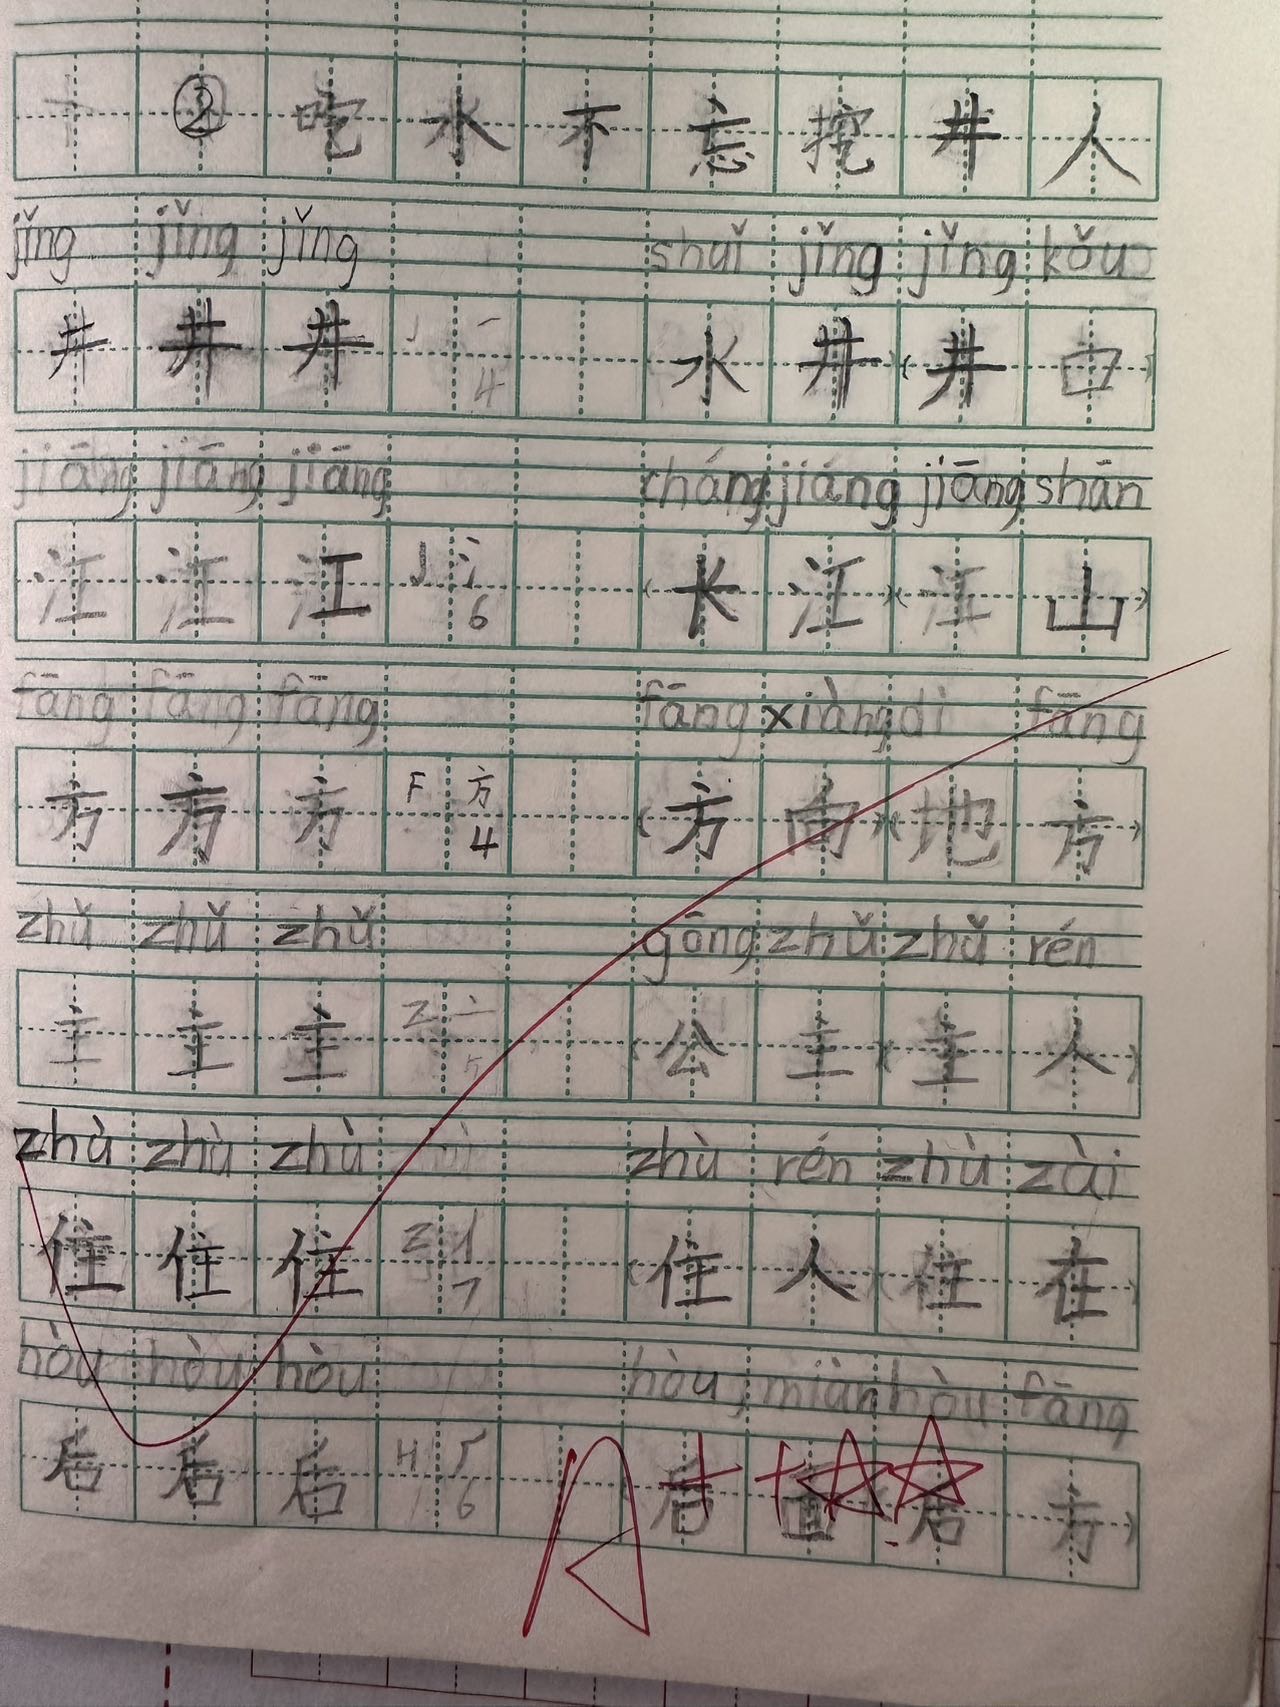 ② 吃水不忘挖井人
jǐng jǐng jǐng shuǐ jǐng jǐng kǒu
井 井 井 J 一 4 水井 (井口)
jiāng jiāng jiāng cháng jiáng jiāng shān
江 江 江 J 氵 6 (长江)(江山)
fāng fāng fāng fāng xiàng dì fāng
方 方 方 F 方 4 (方向)(地方)
zhǔ zhǔ zhǔ gōng zhǔ zhǔ rén
主 主 主 Z 亠 5 (公主)(主人)
zhù zhù zhù zhù rén zhù zài
住 住 住 Z 亻 7 (住人)(住在)
hòu hòu hòu hòu miàn hòu fāng
后 后 后 H 厂 6 (后面)(后方)
A++☆☆